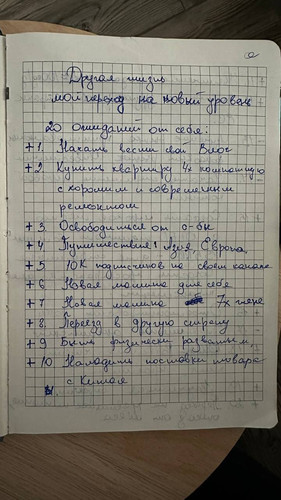 Другая жизнь
мой переход на новый уровень
20 ожиданий от себя:
+ 1. Начать вести свой Влог
+ 2. Купить квартиру 4х комнатную
с хорошим и современным
ремонтом
+ 3. Освободиться от о-бн
+ 4. Путешествия! Азия, Европа
+ 5 10К подписчиков на своем канале
+ 6 Новая машина для себя
+ 7 Новая машина 7х
+ 8. Переезд в другую страну
+ 9 Быть физически развитым
+ 10 Наладить поставки товара
с Китая